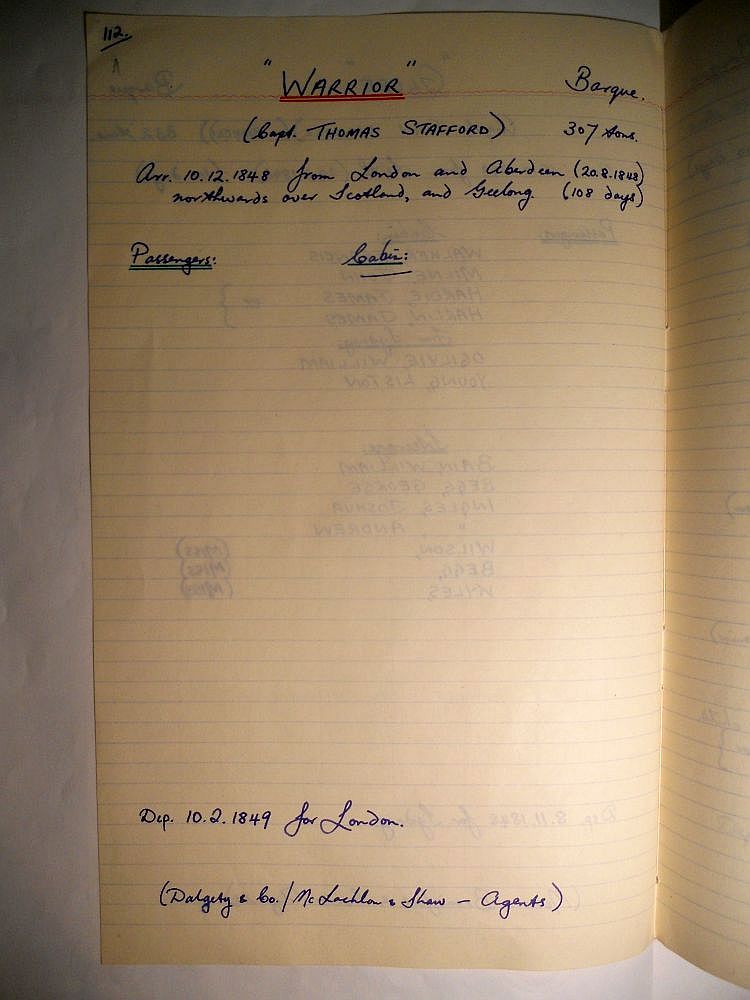 112.
"WARRIOR" Barque.
(Capt. THOMAS STAFFORD) 307 tons.
Arr. 10.12.1848 from London and Aberdeen (20.8.1848)
northwards over Scotland, and Geelong. (108 days)
Passengers: Cabin:
Dep. 10.2.1849 for London.
(Dalgety & Co./McLachlan & Shaw - Agents)